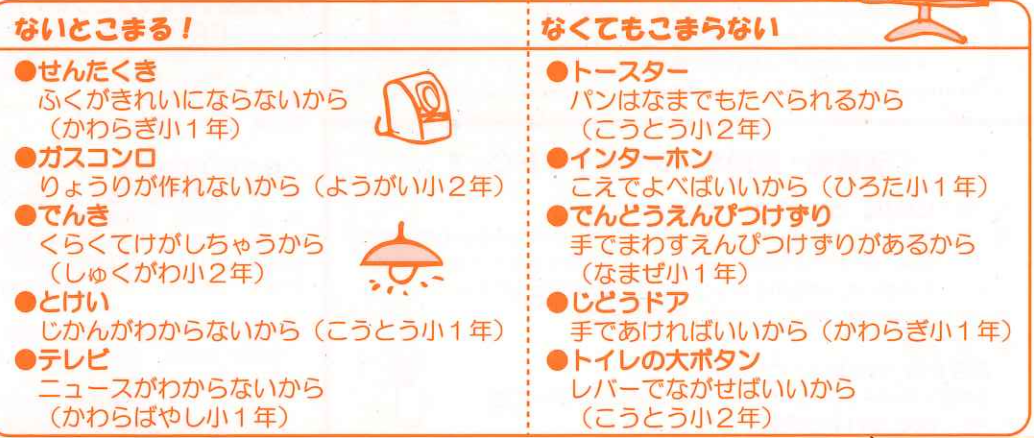 ないとこまる!
●せんたくき
ふくがきれいにならないから
(かわらぎ小1年)
●ガスコンロ
りょうりが作れないから(ようがい小2年)
●でんき
くらくてけがしちゃうから
(しゅくがわ小2年)
●とけい
じかんがわからないから(こうとう小1年)
●テレビ
ニュースがわからないから
(かわらばやし小1年)
なくてもこまらない
●トースター
パンはなまでもたべられるから
(こうとう小2年)
●インターホン
こえでよべばいいから(ひろた小1年)
●でんどうえんぴつけずり
手でまわすえんぴつけずりがあるから
(なまぜ小1年)
●じどうドア
手であければいいから(かわらぎ小1年)
●トイレの大ボタン
レバーでながせばいいから
(こうとう小2年)